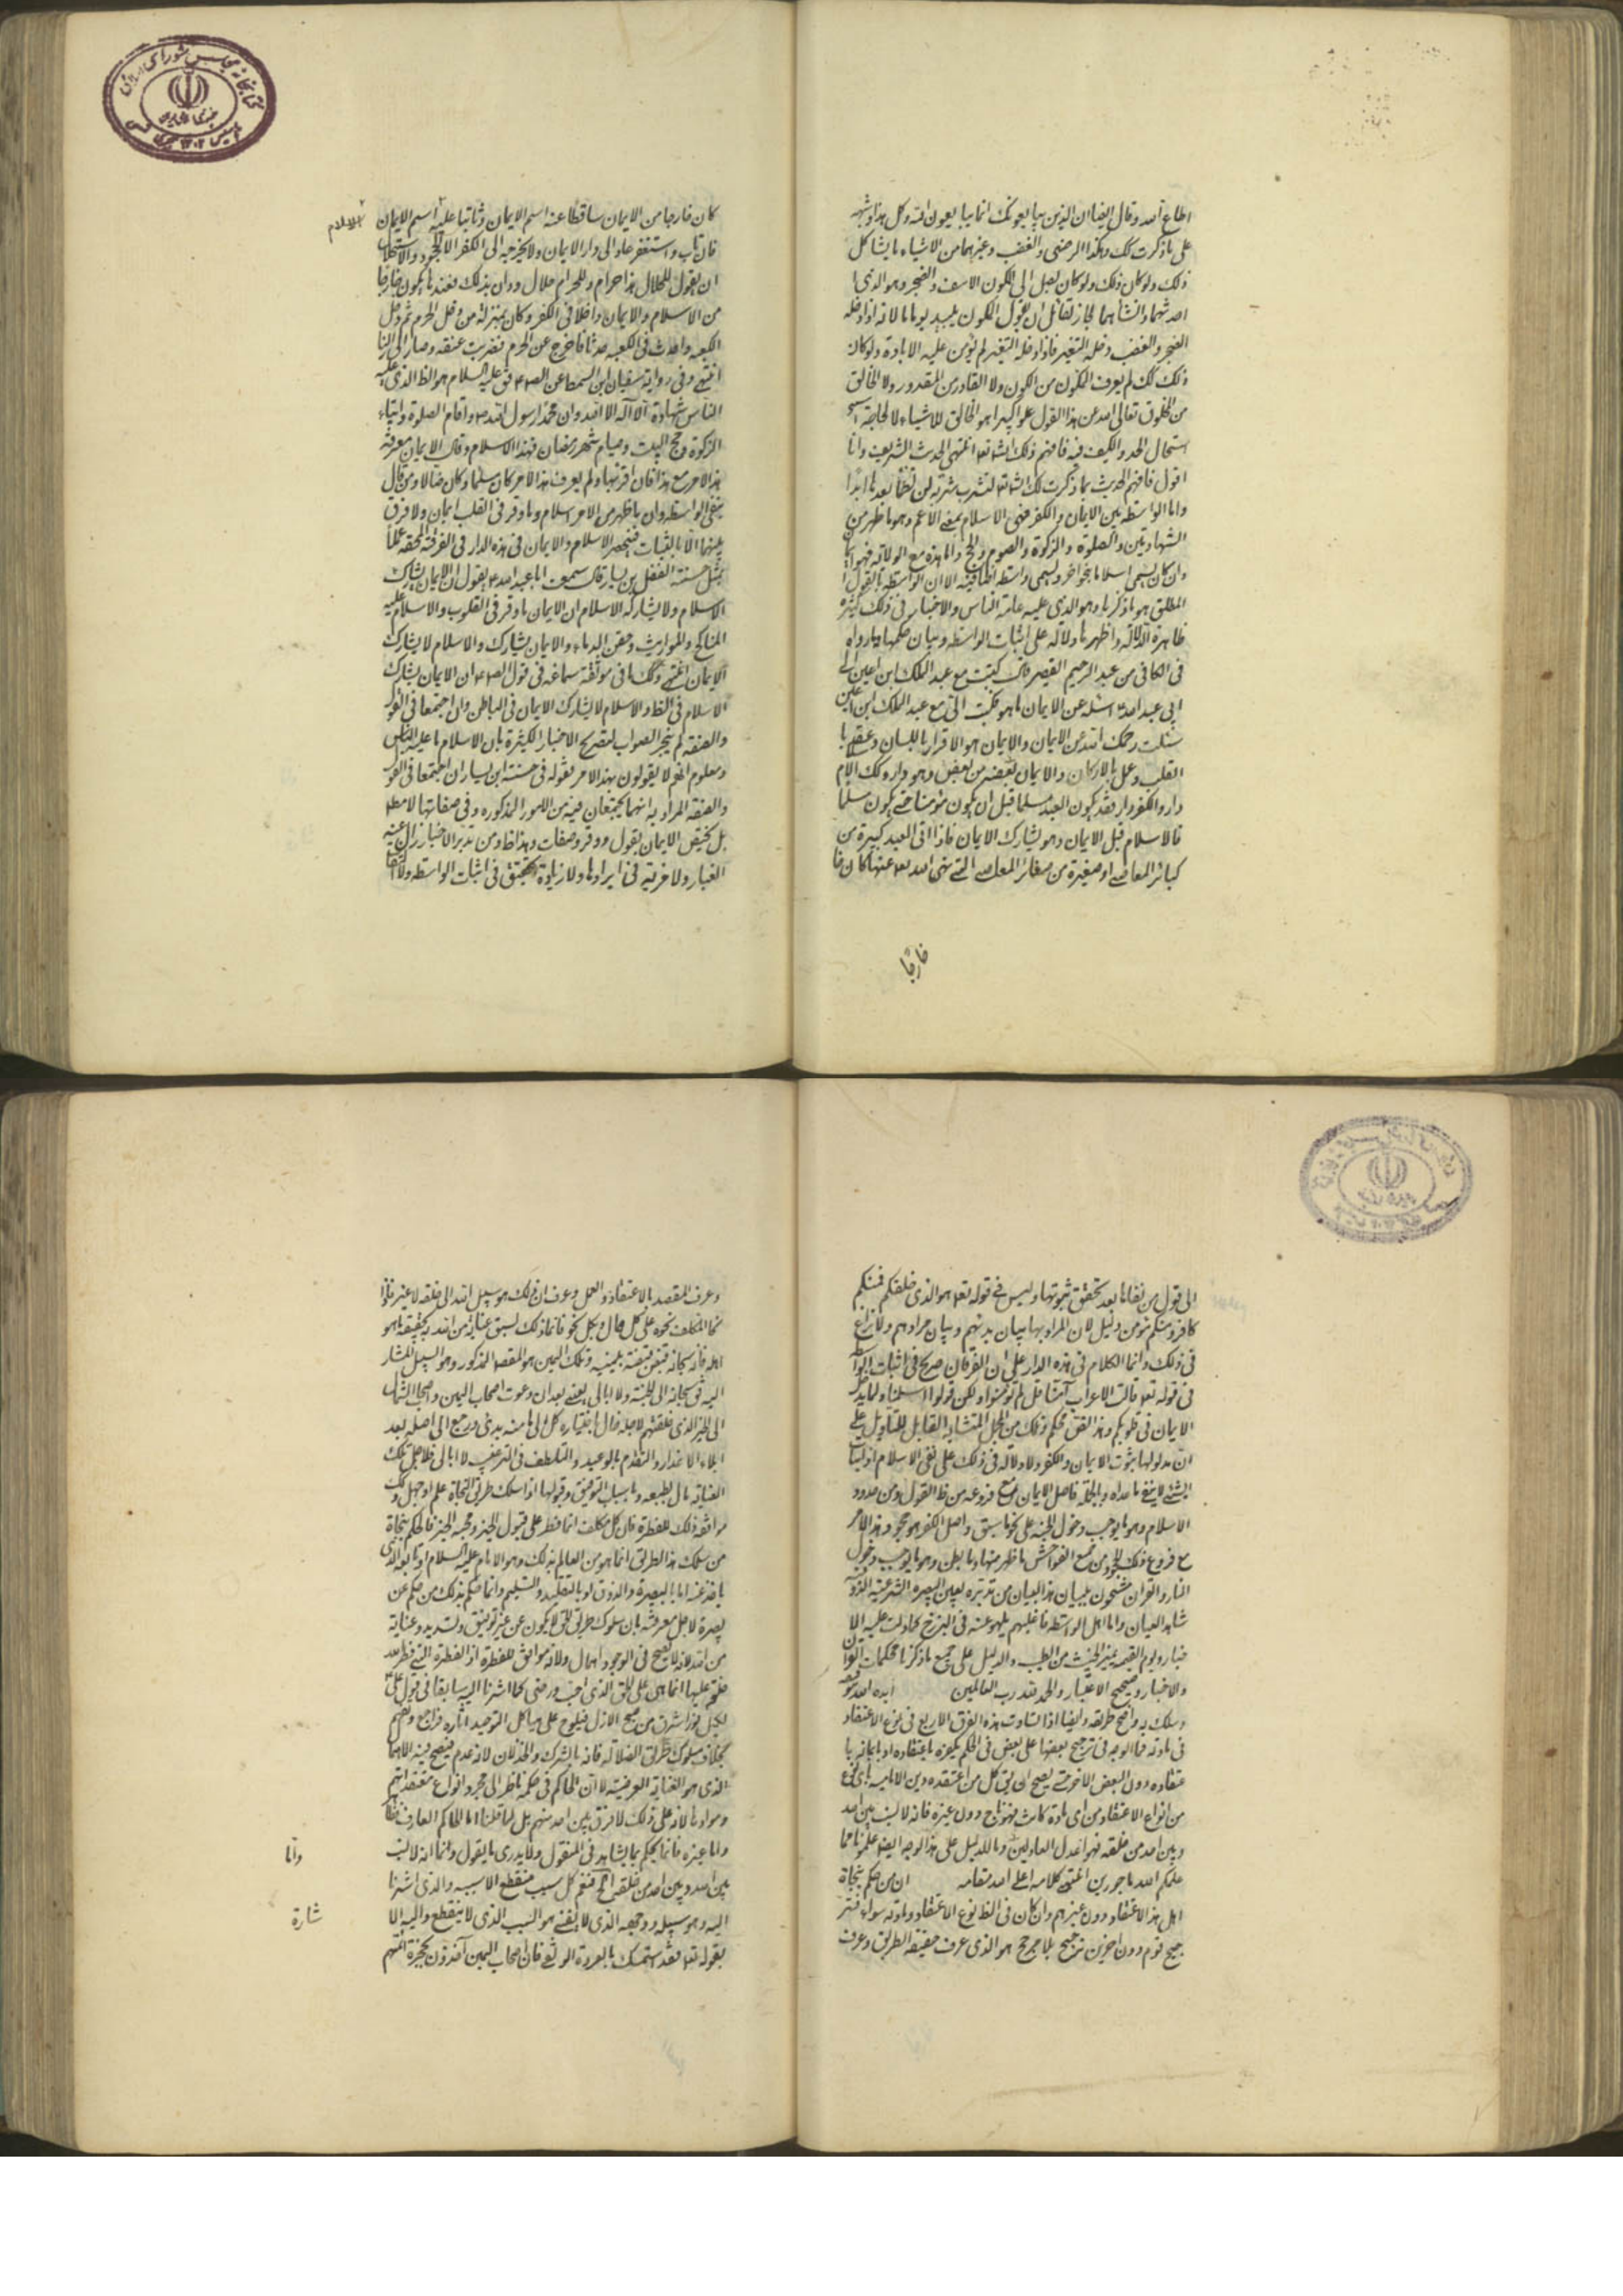 اطاع الله وقال ايضا ان الذين يبايعونك انما يبايعون الله وكل هذا وشبهه
على ما ذكرت لك وهكذا الرضى والغضب وغيرهما من الاشياء مما يشاكل
ذلك ولو كان يصل الى المكون الاسف والضجر وهو الذى
احدثهما وانشأهما لجاز لقائل ان يقول ان المكون يبيد يوما ما لانه اذا دخله
الضجر والغضب دخله التغير فاذا دخله التغير لم يؤمن عليه الابادة ولو كان
ذلك كك لم يعرف المكون من المكون ولا القادر من المقدور ولا الخالق
من المخلوق تعالى الله عن هذا القول علوا كبيرا هو الخالق للاشياء لا لحاجة
استحال الحد والكيف فيه فافهم ذلك انشاء الله انتهى الحديث الشريف وانا
اقول فافهم الحديث بما ذكرت لك انشاء الله لتشرب شربة لن تظمأ بعدها ابدا
واما الواسطة بين الايمان والكفر فهى الاسلام بمعنى الاعم وهو ما ظهر من
الشهادتين والصلوة والزكوة والصوم والحج واما هذه مع الولاية فهو
وان كان يسمى اسلاما بنحو اخر ويسمى واسطة الا ان الواسطة بالقول
المطلق هو ما ذكرنا وهو الذى عليه عامة الناس والاخبار فى ذلك كثيرة
ظاهرة الدلالة واظهرها دلالة على اثبات الواسطة وبيان حكمها ما رواه
فى الكافى عن عبد الرحيم القصير قال كتبت مع عبد الملك ابن اعين الى
ابى عبد الله ع اسئله عن الايمان ما هو فكتب الى مع عبد الملك ابن اعين
سئلت رحمك الله عن الايمان والايمان هو الاقرار باللسان وعقد
القلب وعمل بالاركان والايمان بعضه من بعض وهو دار وكك الاسلام
دار والكفر دار فقد يكون العبد مسلما قبل ان يكون مؤمنا حتى يكون مسلما
فالاسلام قبل الايمان وهو يشارك الايمان فاذا اتى العبد كبيرة من
كبائر المعاصى او صغيرة من صغائر المعاصى التى نهى الله عنها كان خا
خارجا
كان خارجا من الايمان ساقطا عنه اسم الايمان وثابتا عليه اسم الايمان
الاسلام
فان تاب واستغفر عاد الى دار الايمان ولا يخرجه الى الكفر الا الجحود والاستحلال
ان يقول للحلال هذا حرام وللحرام حلال ودان بذلك فعندها يكون خارجا
من الاسلام والايمان داخلا فى الكفر وكان بمنزلة من دخل الحرم ثم دخل
الكعبة واحدث فى الكعبة حدثا فاخرج عن الحرم فضربت عنقه وصار الى النار
انتهى وفى رواية سفيان ابن السمط عن الصادق عليه السلام هو الظ الذى عليه
الناس شهادة ان لا اله الا الله وان محمدا رسول الله ص واقام الصلوة وايتاء
الزكوة وحج البيت وصيام شهر رمضان فهذا الاسلام وقال الايمان معرفة
هذا الامر مع هذا فان اقر بها ولم يعرف هذا الامر كان مسلما وكان ضالا ومن قال
بنفى الواسطة وان ما ظهر من الامر اسلام وما وقر فى القلب ايمان ولا فرق
بينهما الا بالثبات فينحصر الاسلام والايمان فى هذه الدار فى الفرقة المحقة
بمثل حسنة الفضل بن يسار قال سمعت ابا عبد الله ع يقول ان الايمان يشارك
الاسلام ولا يشاركه الاسلام ان الايمان ما وقر فى القلوب والاسلام ما عليه
المناكح والمواريث وحقن الدماء والايمان يشارك والاسلام لا يشارك
الايمان انتهى وكك ما فى موثقة سماعة فى قول الصادق ع ان الايمان يشارك
الاسلام فى الظ والاسلام لا يشارك الايمان فى الباطن وان اجتمعا فى القول
والصفة لم ينجر الصواب لتصريح الاخبار الكثيرة بان الاسلام ما عليه الناس
ومعلوم انهم لا يقولون بهذا الامر فقوله فى حسنة ابن يسار ان اجتمعا فى القول
والصفة المراد به انهما يجتمعان فيه من الامور المذكورة وفى صفاتها لا مط
بل يختص الايمان بقول ووقر وصفات وهذا ظ ومن تدبر الاخبار زال عنه
الغبار ولا مزية فى ايرادها ولا زيادة تحقيق فى اثبات الواسطة
الى قول من نفاها بعد تحقق ثبوتها وليس فى قوله تعالى هو الذى خلقكم فمنكم
كافر ومنكم مؤمن دليل لان المراد بها بيان بدئهم وبيان مرادهم ولا نزاع
فى ذلك وانما الكلام فى هذه الدار على ان الفرقان صريح فى اثبات الواسطة
فى قوله تعالى قالت الاعراب آمنا قل لم تؤمنوا ولكن قولوا اسلمنا ولما يدخل
الايمان فى قلوبكم وهذا القول محكم وتلك من المجمل المتشابه القابل للتأويل على
ان مدلولها ثبوت الايمان والكفر ولا دلالة فى ذلك على نفى الاسلام اذ اثبات
الشئ لا ينفى ما عداه وبالجملة فاصل الايمان مع فروعه من ظ القول ومن حدود
الاسلام وهو ما يوجب دخول الجنة على نحو ما سبق واصل الكفر هو جحود هذا الامر
مع فروع ذلك الجحود من جميع الفواحش ما ظهر منها وما بطن وهو ما يوجب دخول
النار والقرآن مشحون ببيان هذا البيان من تدبره بعين البصيرة
شاهد العيان واما اهل الواسطة فاغلبهم يلهى عنه فى البرزخ كما دلت عليه الا
خبار ويوم القيمة يتميز الخبيث من الطيب والدليل على جميع ما ذكرنا محكمات القرآن
والاخبار وصحيح الاعتبار والحمد لله رب العالمين ايده الله
وسلك به واضح طريقه وايضا اذا تساوت هذه الفرق الاربع فى نوع الاعتقاد
فى مادته فما الوجه فى ترجيح بعضها على بعض فى الحكم بكفره باعتقاده او بايمانه با
عتقاده دون البعض الاخر حتى يصح ان يق كل من اعتقد دين الامامية باى نوع
من انواع الاعتقاد من اى مادة كانت فهو ناج دون غيره فانه لا نسب بين الله
وبين احد من خلقه فهو اعدل العادلين وما الدليل على هذا الوجه ايضا علمونا مما
علمكم الله ماجورين انتهى كلامه اعلى الله مقامه ان من حكم بنجاة
اهل هذا الاعتقاد دون غيرهم وان كان فى الظ نوع الاعتقاد ومادته سواء فتر
جيح قوم دون اخرين ترجيح بلا مرجح هو الذى عرف حقيقة الطريق وعرف
وعرف المقصد بالاعتقاد والعمل وعرف ان ذلك هو سبيل الله الى خلقه لا غير فاذا
نحا المكلف نحوه على كل حال وبكل نحو فانما ذلك لسبق عناية من الله به لحقيقة ما هو
اهله فانه سبحانه قبض قبضة بيمينه وتلك اليمين هو المقصد المذكور وهو السبيل المشار
اليه فق سبحانه الى الجنة ولا ابالى يعنى بعد ان دعوت اصحاب اليمين واصحاب الشمال
الى الخير الذى خلقتهم لاجله فمال باختياره كل الى ما منه بدئ ورجع الى اصله بعد
ابلاء الاعذار والتقدم بالوعيد والتلطف فى الترغيب لا ابالى فلاجل تلك
العناية مال بطبيعه وباسباب التوفيق وقبولها اذا سلك طريق النجاة علم او جهل وكك
موافقة ذلك للفطرة فان كل مكلف انما فطر على قبول الخير ومحبة الخير فالحكم بنجاة
من سلك هذا الطريق انما هو من العالم بذلك وهو الامام عليه السلام او تابعه الذى
ياخذ عنه اما بالبصيرة والذوق او بالتقليد والتسليم وانما حكم بذلك من حكم عن
بصيرة لاجل معرفته بان سلوك طريق الحق لا يكون عن غير توفيق وتسديد وعناية
من الله لانه لا يصح فى الوجود اهمال ولانه موافق للفطرة اذ الفطرة التى فطر الله
خلقه عليها انما هى على الحق الذى احب ورضى كما اشرنا اليه سابقا فى قول على ع
لكميل نور اشرق من صبح الازل فيلوح على هياكل التوحيد آثاره فراجع وتفهم
بخلاف سلوك طرق الضلالة فانه بالترك والخذلان لانه عدم فيصح فيه الاهمال
الذى هو العناية العرضية لا ان الحاكم فى حكمه ناظر الى مجرد انواع معتقداتهم
وموادها لانه على ذلك لا فرق بين احد منهم بل لما قلنا اما للحاكم العارف
واما غيره فانما يحكم بما يشاهد فى المنقول ولا يدرى ما يقول واما انه لا نسب
واما
بين الله وبين احد من خلقه الخ فنعم كل سبب منقطع الا سببه والذى اشرنا
اليه وهو سبيله ووجهه الذى لا يفنى هو السبب الذى لا ينقطع واليه الا
شارة
بقوله تعالى فقد استمسك بالعروة الوثقى فان اصحاب اليمين آخذون بحجزة